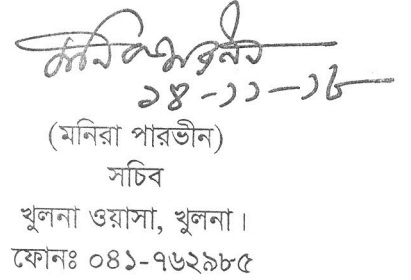 ১৪-১১-১৮
(মনিরা পারভীন)
সচিব
খুলনা ওয়াসা, খুলনা।
ফোনঃ ০৪১-৭৬২৯৮৫